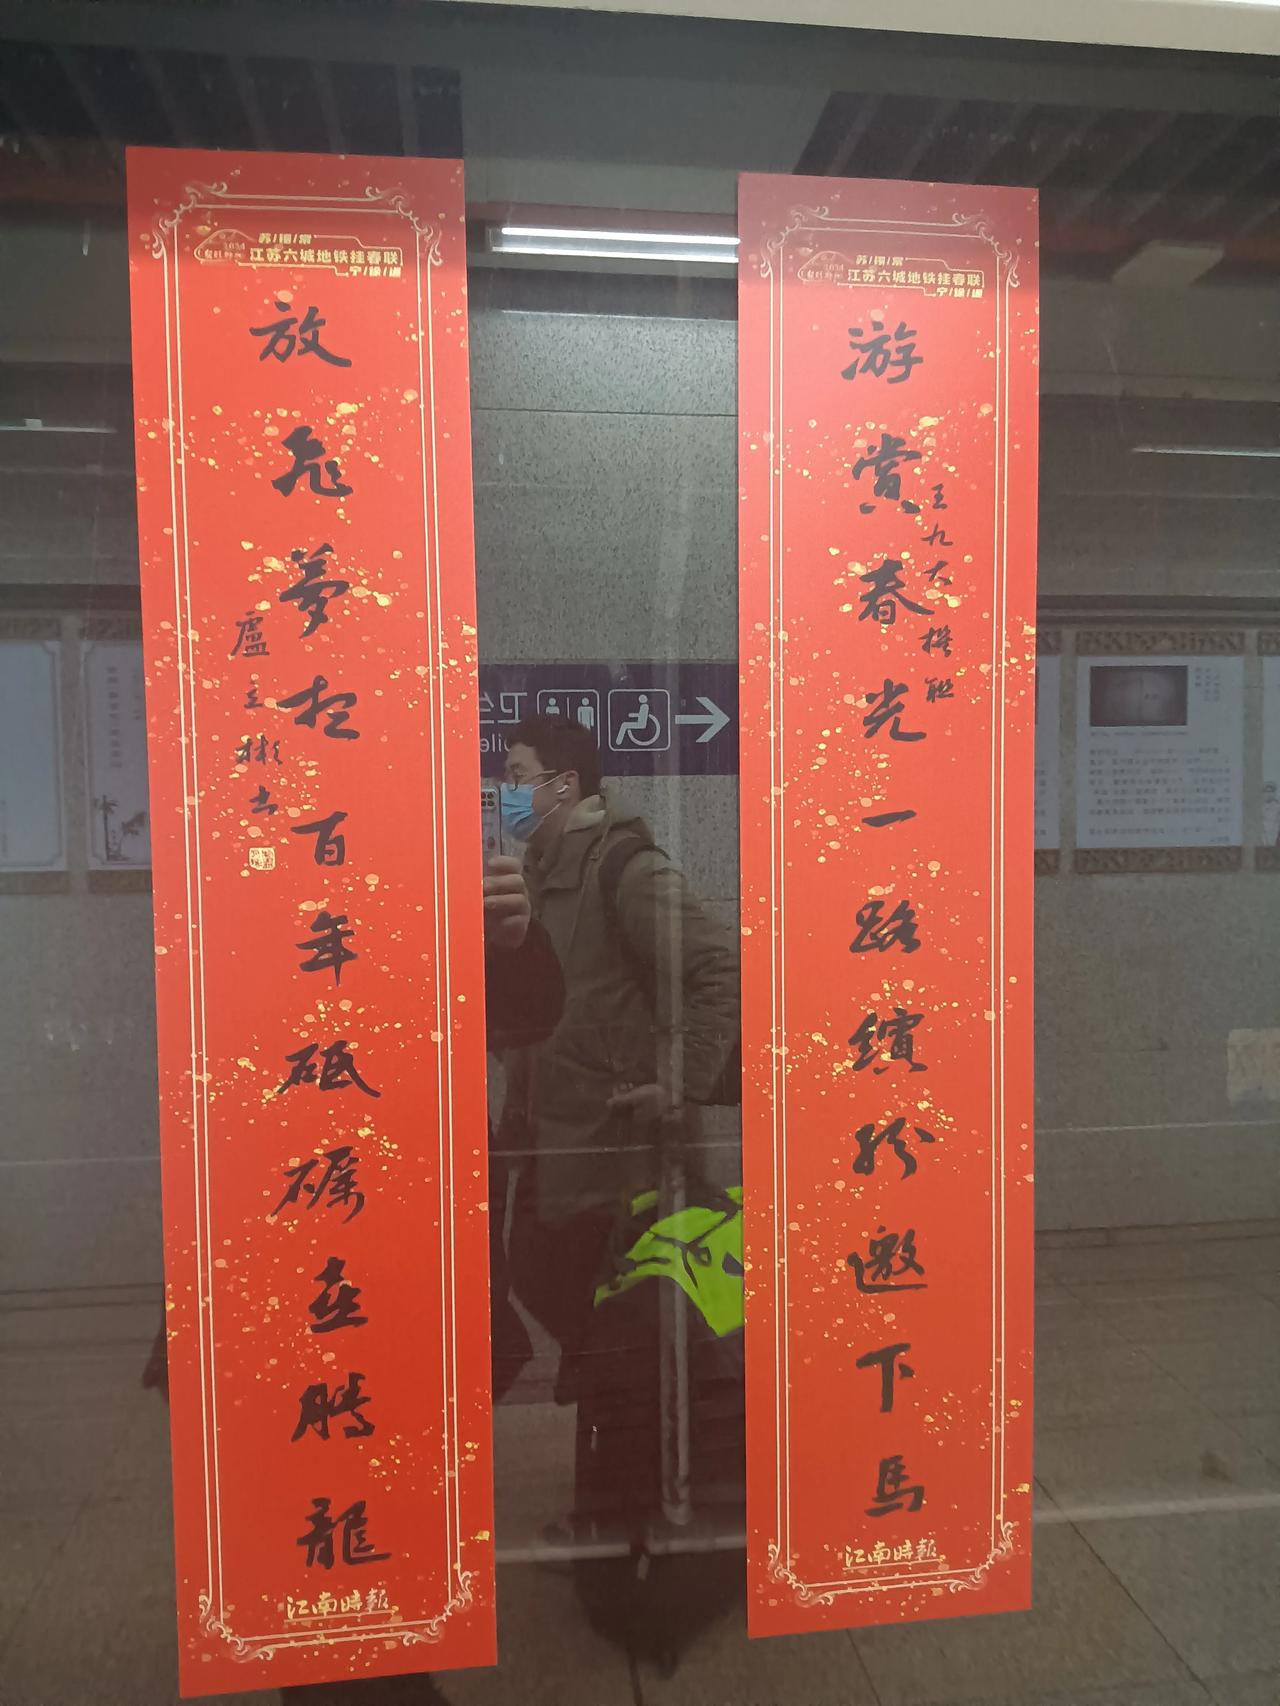 苏/锡/常
江苏六城地铁挂春联
宁/徐/通
游赏春光一路缤纷邀下馬
王九大撰联
江南時報
苏/锡/常
2024
江苏六城地铁挂春联
宁/徐/通
放飛夢想百年砥礪在騰龍
盧立彬书
江南時報